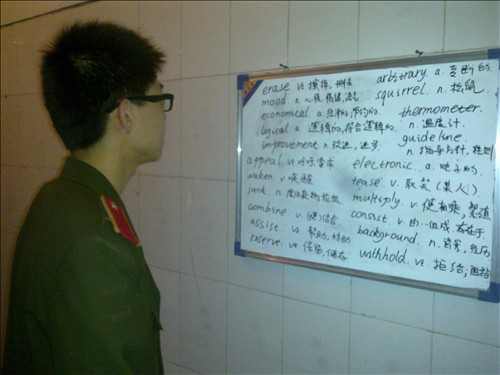 erase v. 擦掉, 删去
arbitrary. a. 专断的
mood. n. 心情, 情绪, 语气
squirrel. n. 松鼠.
economical. a. 经济的, 节约的.
thermometer.
n. 温度计.
logical a. 逻辑的, 符合逻辑的.
guideline.
improvement n. 改进, 进步
n. 指导方针, 准则
appeal v.
electronic. a. 电子的.
waken v. 唤醒
tease. v. 取笑 (某人)
junk n.
multiply v. 使相乘, 繁殖
combine v. (使)结合
consist v. 由…组成, 存在于
assist v. 帮助, 协助
background. n. 背景, 经历
reserve. vt. 保留, 储存
withhold. vt. 拒给; 阻挡